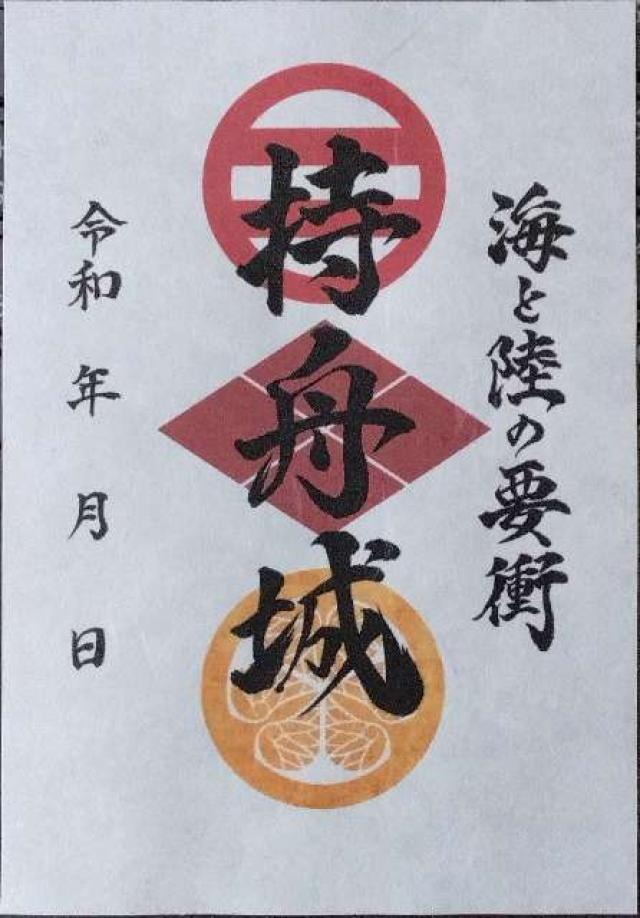 海と陸の要衝
持舟城
令和 年 月 日